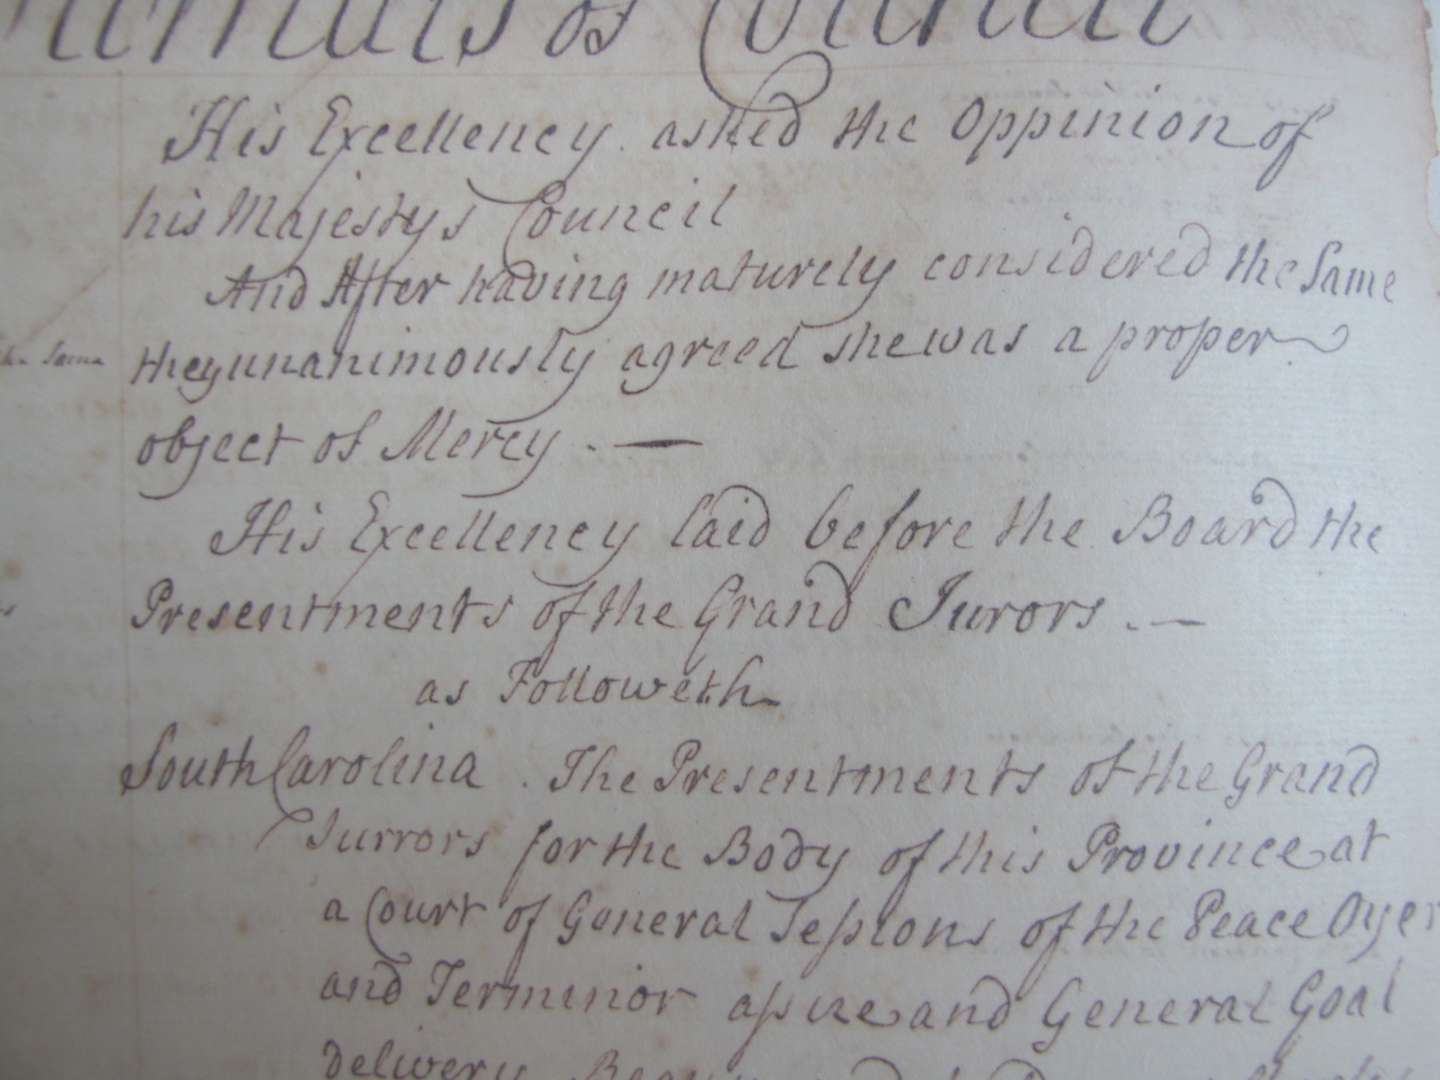 Journals of Council
His Excellency asked the Oppinion of
his Majestys Council
And After having maturely considered the Same
the Same
they unanimously agreed she was a proper
object of Mercy. —
His Excellency laid before the Board the
Presentments of the Grand Jurors. —
as Followeth
South Carolina. The Presentments of the Grand
Jurrors for the Body of this Province at
a Court of General Sessions of the Peace Oyer
and Terminor assize and General Goal
delivery